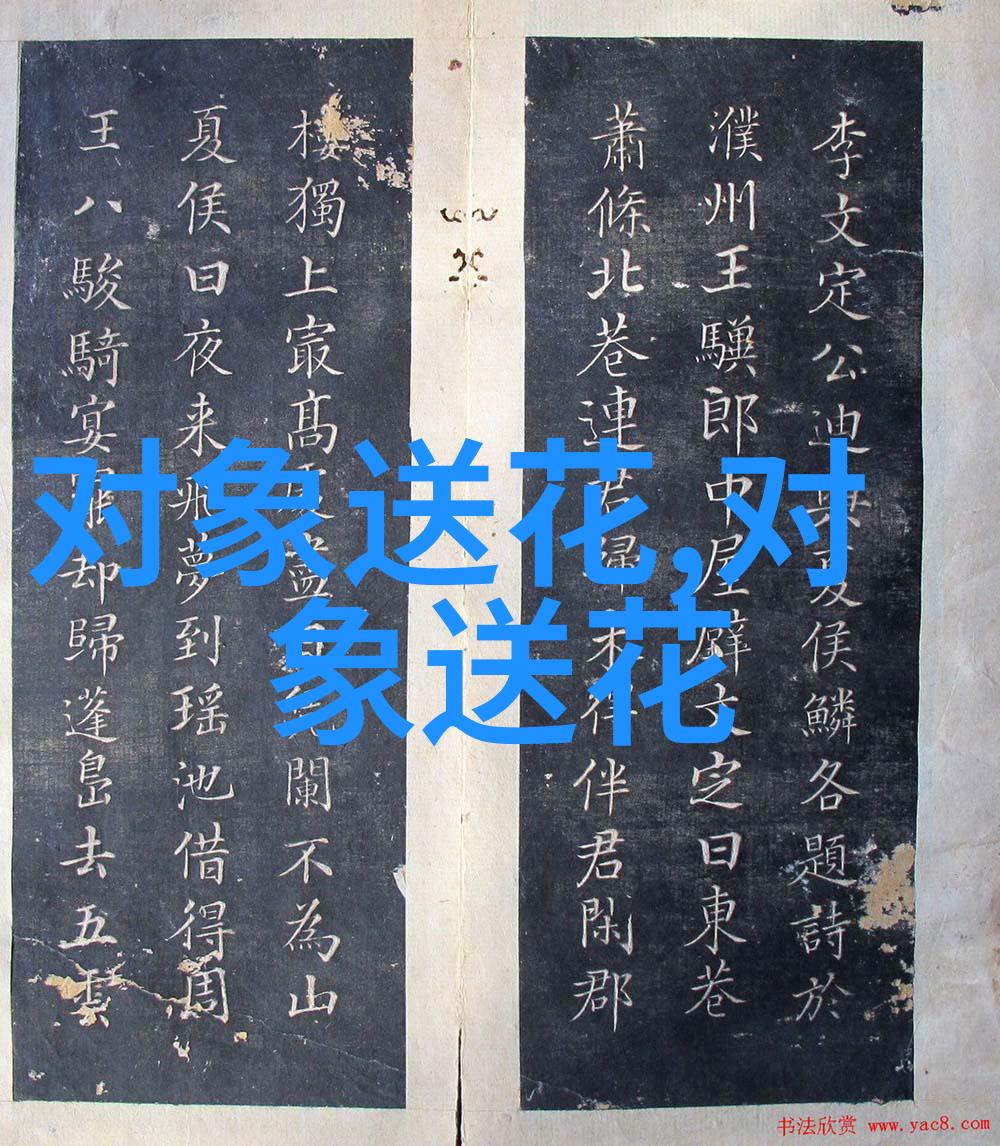 对象送花,对
象送花
李文定公迪與夏侯鱗各題詩於
濮州王郎中屋壁文定曰東巷
蕭條北巷連君歸未得伴君閑郡
樓獨上㝡髙盡闌不為山
夏侯曰夜来飛夢到瑶池借得周
王八駿騎宴罷却歸蓬島去五雲
书法欣赏 www.yac8.com